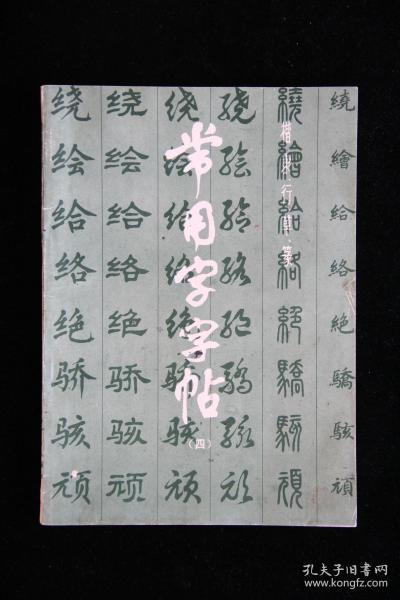 常用字字帖
（四）
楷隶行草篆
绕 绕 绕 绕 繞 繞
绘 绘 绘 绘 繪 繪
给 给 给 给 給 給
络 络 络 络 絡 絡
绝 绝 绝 绝 絕 絶
骄 骄 骄 骄 驕 驕
骇 骇 骇 骇 駭 駭
顽 顽 顽 顽 頑 頑
孔夫子旧书网
www.kongfz.com